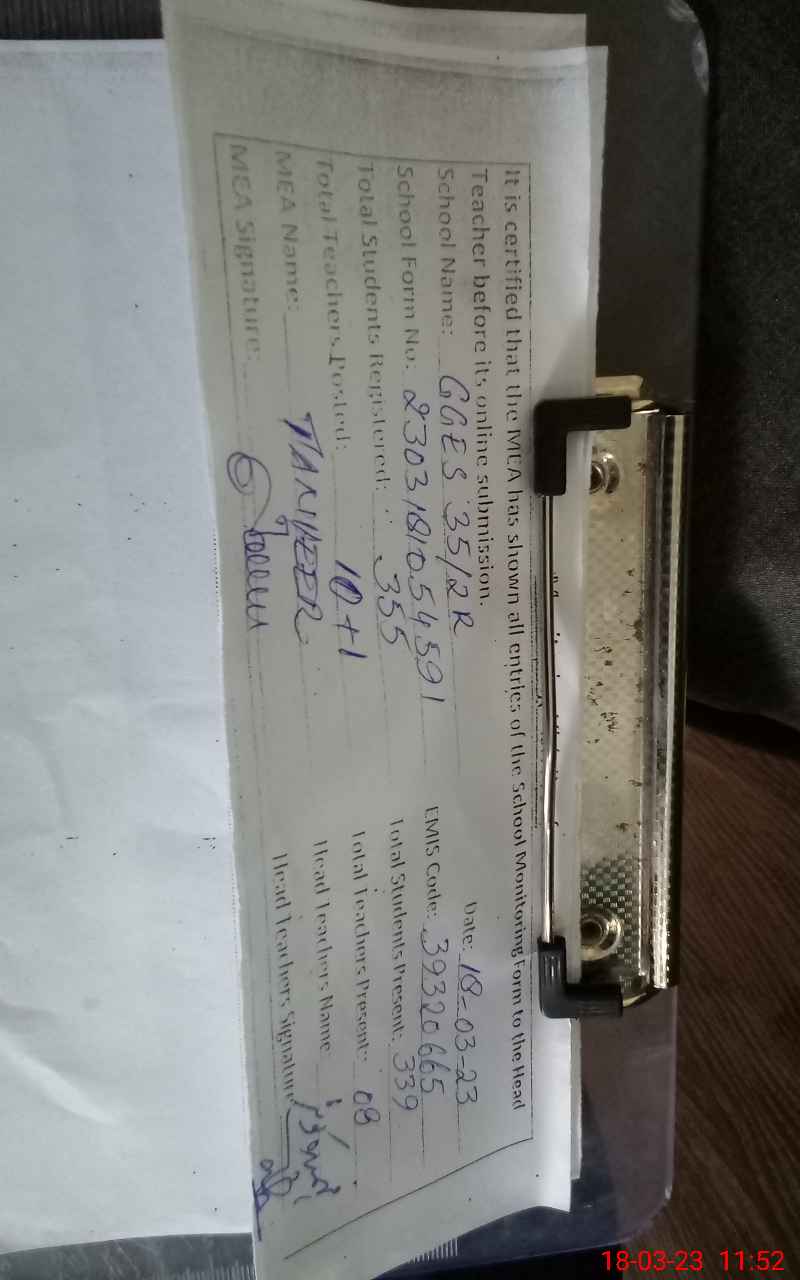 It is certified that the MEA has shown all entries of the School Monitoring Form to the Head
Teacher before its online submission.
Date: 18-03-23
School Name: GGES 35/2R
EMIS Code: 39320665
School Form No: 2303181054591
Total Students Present: 339
Total Students Registered: 355
Total Teachers Present: 08
Total Teachers Posted: 10+1
Head Teachers Name
MEA Name:
Head Teachers Signature
MEA Signature:
18-03-23 11:52